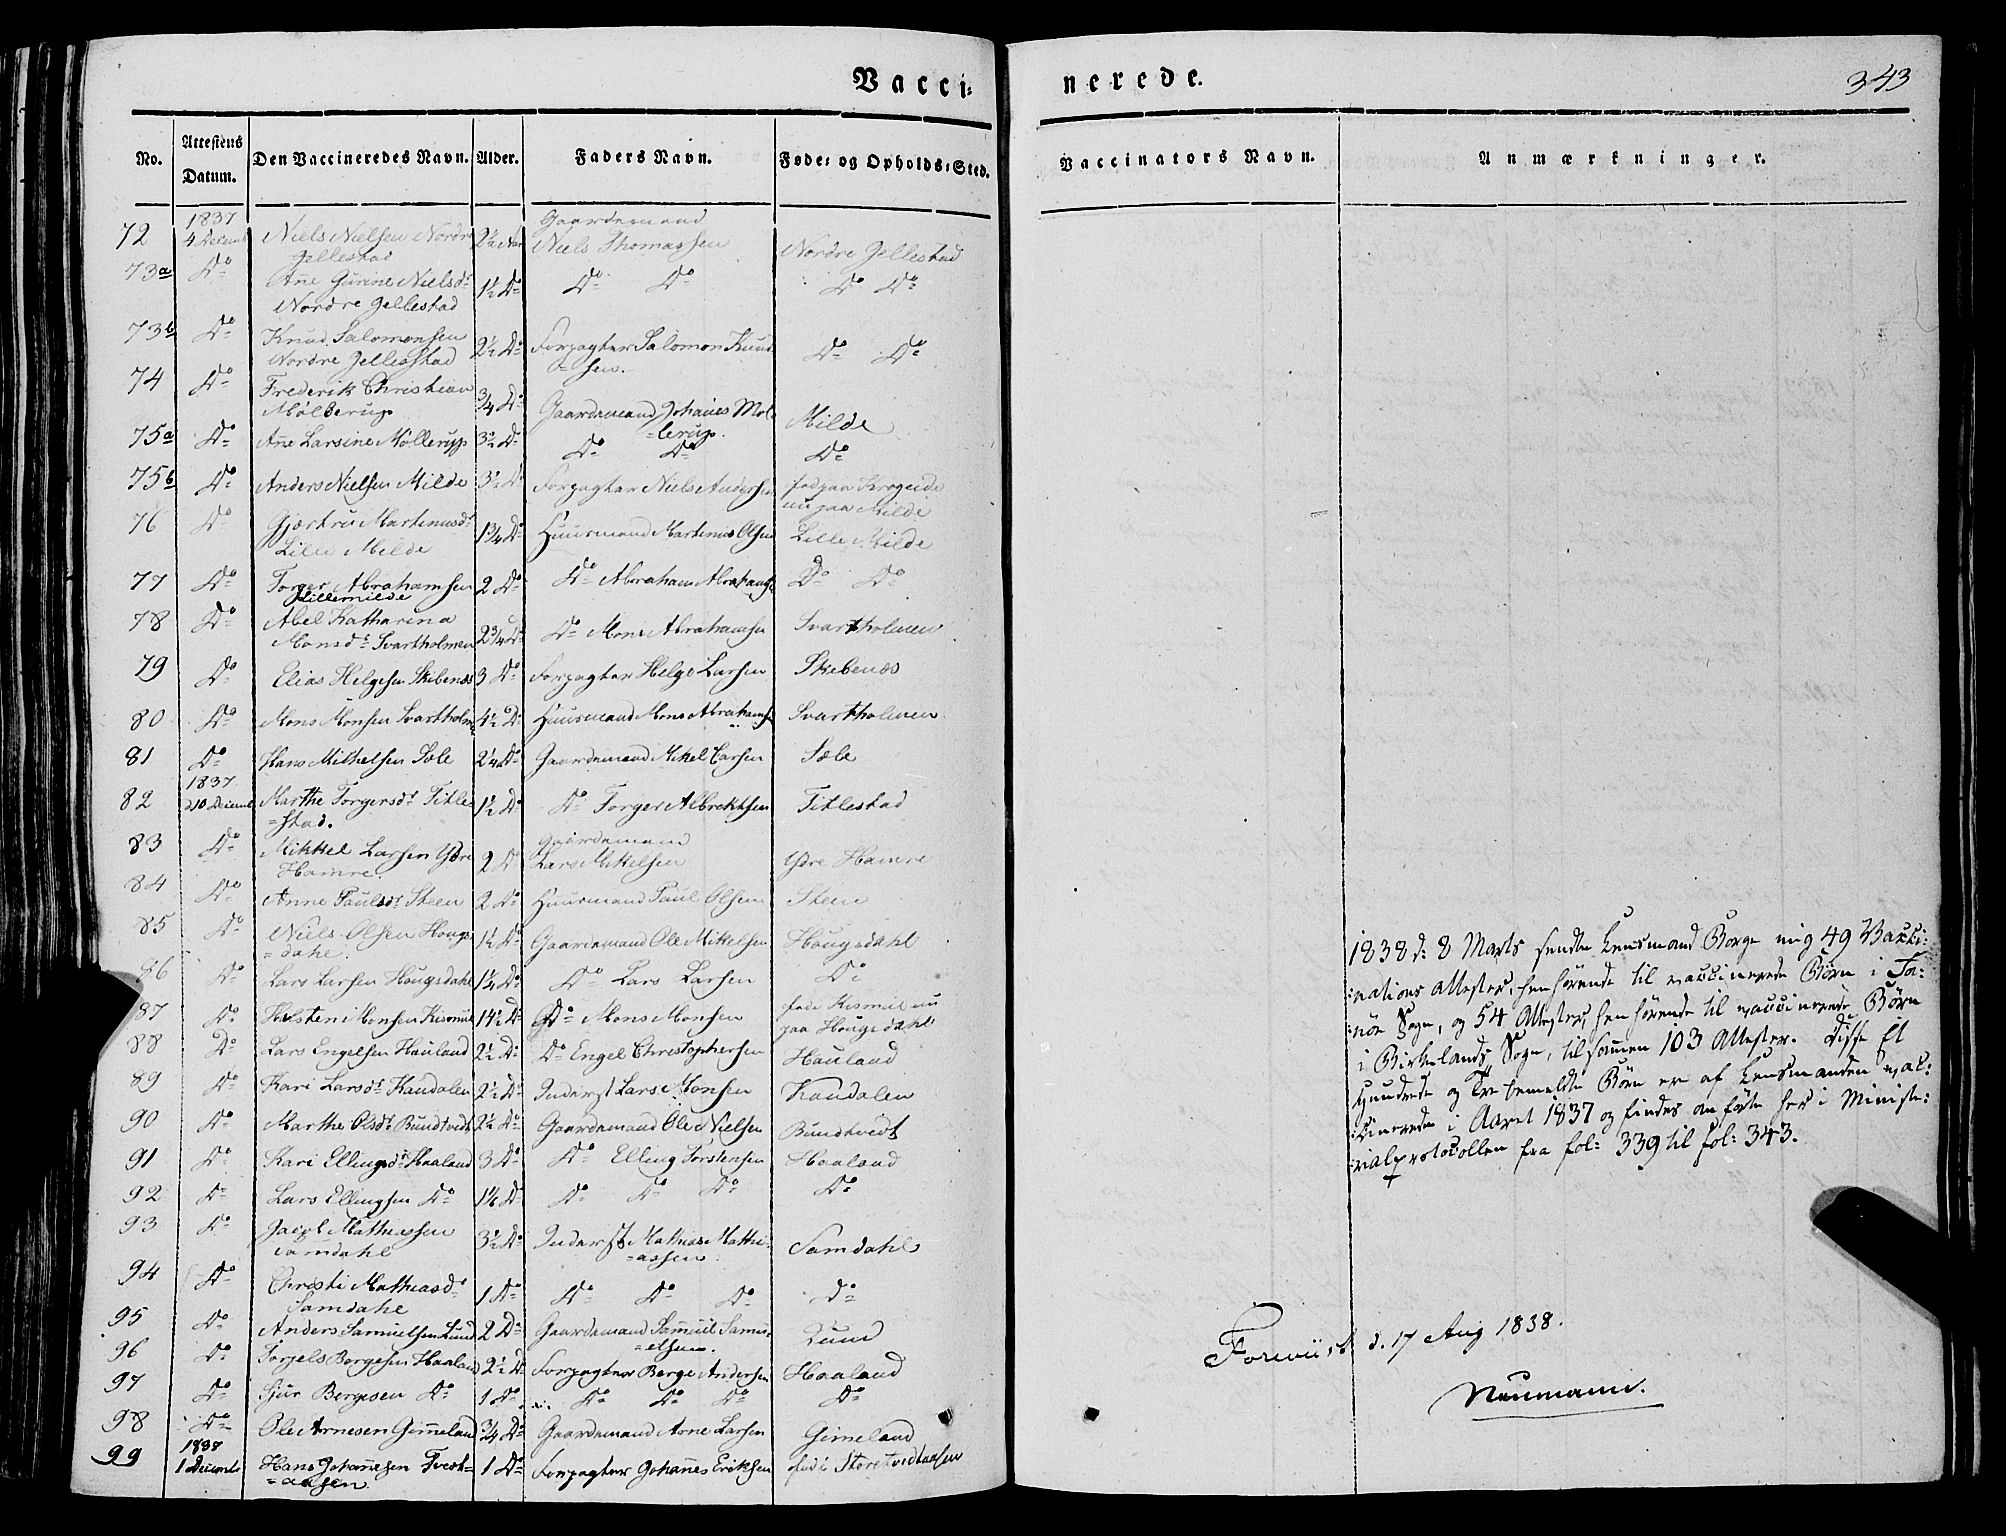 Vacci=
nerede.
343
No. Attestens Datum. Den Vaccineredes Navn. Alder. Faders Navn. Føde= og Opholds=Sted.
Vaccinators Navn. Anmærkninger.
72 1837 4 Decemb Niels Nielsen Nordre Gjellestad 2½ Aar Gaardmand Niels Thomassen Nordre Gjellestad
73a Do Ane Gurine Nielsdr Nordre Gjellestad 1½ Do Do Do Do Do
73b Do Knud Salomonsen Nordre Gjellestad 2½ Do Forpagter Salomon Knud=sen. Do Do
74 Do Frederik Christian Møllerup ¾ Do Gaardmand Johanes Møl=lerup. Milde
75a Do Ane Larsine Møllerup 3½ Do Do Do Do
75b Do Anders Nielsen Milde 3½ Do Forpagter Niels Andersen fød paa Krogeide nu paa Milde
76 Do Gjertru Martinusdr Lille Milde 1¾ Do Huusmand Martinus Olsen Lille Milde
77 Do Torger Abrahamsen Lillemilde 2 Do Do Abraham Abrahams Do Do
78 Do Abel Katharina Monsdr Svartholmen 2¾ Do Do Mons Abrahamsen Svartholmen
79 Do Elias Helgesen Skibenæs 3 Do Forpagter Helge Larsen Skibenæs
80 Do Mons Monsen Svartholm 4½ Do Huusmand Mons Abrahams Svartholmen
81 Do Hans Mikkelsen Sæle 2¼ Do Gaardmand Mikel Larsen Sæle
82 1837 210 Decemb Marthe Torgersdr Title=stad. 1½ Do Do Torger Albrektsen Titlestad
83 Do Mikkel Larsen Ydre Hamre 2 Do Gaardmand Lars Mikelsen Ydre Hamre
84 Do Anne Paulsdr Steen 2 Do Huusmand Paul Olsen Steen
85 Do Niels Olsen Hougs=dahl. 1½ Do Gaardmand Ole Mikkelsen Hougsdahl
86 Do Lars Larsen Hougsdahl 1¼ Do Do Lars Larsen Do
87 Do Halsten Monsen Kismul 14½ Do Do Mons Monsen fød i Kismul nu paa Hougsdahl
88 Do Lars Engelsen Hauland 2½ Do Do Engel Christophersen Hauland
89 Do Kari Larsdr Kandalen 2½ Do Inderst Lars Monsen Kandalen
90 Do Marthe Olsdr Bundtvedt 2½ Do Gaardmand Ole Nielsen Bundtvedt
91 Do Kari Ellingsdr Haaland 3 Do Do Elling Torstensen Haaland
92 Do Lars Ellingsen Do 1½ Do Do Do Do Do
93 Do Jacob Mathiassen Samdahl 3½ Do Inderst Mathias Mathi=assen Samdahl
94 Do Christi Mathiasdr Samdahl 1 Do Do Do Do Do
95 Do Anders Samuelsen Lund 2 Do Gaardmand Samuel Samu=elsen. Lund
96 Do Torjels Børgesen Haaland 2½ Do Forpagter Berge Andersen Haaland
97 Do Sjur Bergesen Do 1 Do Do Do Do Do
98 Do Ole Arnesen Gimeland ¾ Do Gaardmand Arne Larsen Gimeland
99 1837 1 Decemb Hans Johanesen Tvedt=aasen 1 Do Forpagter Johanes Eriksen fød i Storetvedtaasen
1838 d: 8 Marts sendte Lensmand Borge mig 49 Vacci:
:nations Attester, henhørende til vaccinerede Børn i Fa:
:nøe Sogn, og 54 Attester, henhørende til vaccinerede Børn
i Birkelands Sogn, tilsamen 103 Attester. Disse Et
Hundrede og Tre bemeldte Børn er af Lensmanden vac:
:cinerede i Aaret 1837 og findes anførte her i Ministe:
:rialprotocollen fra fol: 339 til fol: 343.
Foreviist d. 17 Aug 1838.
Neumann.